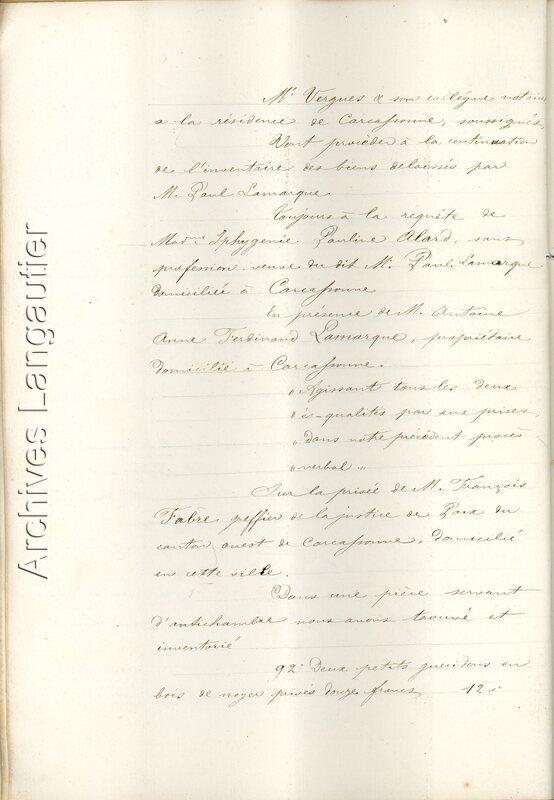 Me Vergues & son collègue notaires
a la résidence de Carcassonne, soussignés
Vont procéder à la continuation
de l'inventaire des biens delaissés par
M. Paul Lamarque
Toujours à la requête de
Made Iphygénie Pauline Alard, sans
profession, veuve du dit M. Paul Lamarque
domiciliée à Carcassonne
En présence de M. Antoine
Anne Ferdinand Lamarque, propriétaire
domicilié à Carcassonne.
"Agissant tous les deux
"ès-qualités par eux prises
"dans notre précédent procès
"verbal"
Sur la prisée de M. François
Fabre, greffier de la justice de Paix du
canton ouest de Carcassonne, domicilié
en cette ville.
Dans une pièce servant
d'antichambre nous avons trouvé et
inventorié
92° Deux petits gueridons en
bois de noyer prisés douze francs 12
Archives Langautier